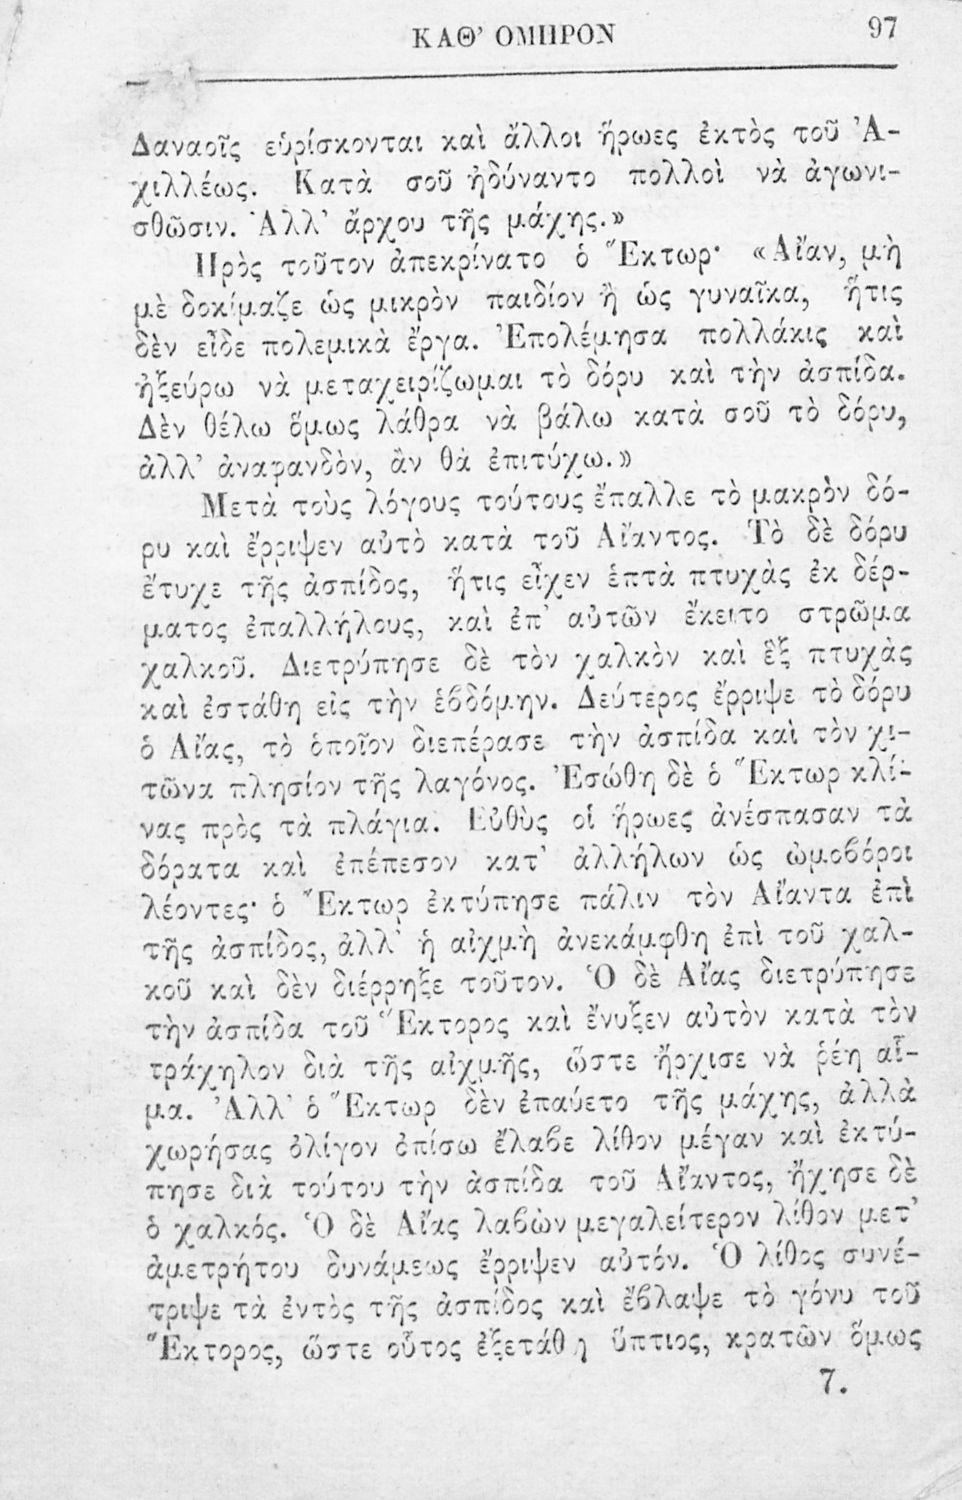 ΚΑΘ’ ΟΜΗΡΟΝ 97
Δαναοῖς εὑρίσκονται καὶ ἄλλοι ἥρωες ἐκτὸς τοῦ Ἀ-
χιλλέως. Κατὰ σοῦ ἠδύναντο πολλοὶ νὰ ἀγωνι-
σθῶσιν. Ἀλλ’ ἄρχου τῆς μάχης.»
Πρὸς τοῦτον ἀπεκρίνατο ὁ Ἕκτωρ· «Αἶαν, μὴ
μὲ δοκίμαζε ὡς μικρὸν παιδίον ἢ ὡς γυναῖκα, ἥτις
δὲν εἶδε πολεμικὰ ἔργα. Ἐπολέμησα πολλάκις καὶ
ἠξεύρω νὰ μεταχειρίζωμαι τὸ δόρυ καὶ τὴν ἀσπίδα.
Δὲν θέλω ὅμως λάθρα νὰ βάλω κατὰ σοῦ τὸ δόρυ,
ἀλλ’ ἀναφανδὸν, ἂν θὰ ἐπιτύχω.»
Μετὰ τοὺς λόγους τούτους ἔπαλλε τὸ μακρὸν δό-
ρυ καὶ ἔρριψεν αὐτὸ κατὰ τοῦ Αἴαντος. Τὸ δὲ δόρυ
ἔτυχε τῆς ἀσπίδος, ἥτις εἶχεν ἑπτὰ πτυχὰς ἐκ δέρ-
ματος ἐπαλλήλους, καὶ ἐπ’ αὐτῶν ἔκειτο στρῶμα
χαλκοῦ. Διετρύπησε δὲ τὸν χαλκὸν καὶ ἓξ πτυχὰς
καὶ ἐστάθη εἰς τὴν ἑβδόμην. Δεύτερος ἔρριψε τὸ δόρυ
ὁ Αἴας, τὸ ὁποῖον διεπέρασε τὴν ἀσπίδα καὶ τὸν χι-
τῶνα πλησίον τῆς λαγόνος. Ἐσώθη δὲ ὁ Ἕκτωρ κλί-
νας πρὸς τὰ πλάγια. Εὐθὺς οἱ ἥρωες ἀνέσπασαν τὰ
δόρατα καὶ ἐπέπεσον κατ’ ἀλλήλων ὡς ὠμοβόροι
λέοντες· ὁ Ἕκτωρ ἐκτύπησε πάλιν τὸν Αἴαντα ἐπὶ
τῆς ἀσπίδος, ἀλλ’ ἡ αἰχμὴ ἀνεκάμφθη ἐπὶ τοῦ χαλ-
κοῦ καὶ δὲν διέρρηξε τοῦτον. Ὁ δὲ Αἴας διετρύπησε
τὴν ἀσπίδα τοῦ Ἕκτορος καὶ ἔνυξεν αὐτὸν κατὰ τὸν
τράχηλον διὰ τῆς αἰχμῆς, ὥστε ἤρχισε νὰ ῥέῃ αἷ-
μα. Ἀλλ’ ὁ Ἕκτωρ δὲν ἐπαύετο τῆς μάχης, ἀλλὰ
χωρήσας ὀλίγον ὀπίσω ἔλαβε λίθον μέγαν καὶ ἐκτύ-
πησε διὰ τούτου τὴν ἀσπίδα τοῦ Αἴαντος, ἤχησε δὲ
ὁ χαλκός. Ὁ δὲ Αἴας λαβὼν μεγαλείτερον λίθον μετ’
ἀμετρήτου δυνάμεως ἔρριψεν αὐτόν. Ὁ λίθος συνέ-
τριψε τὰ ἐντὸς τῆς ἀσπίδος καὶ ἔβλαψε τὸ γόνυ τοῦ
Ἕκτορος, ὥστε οὗτος ἐξετάθη ὕπτιος, κρατῶν ὅμως
7.